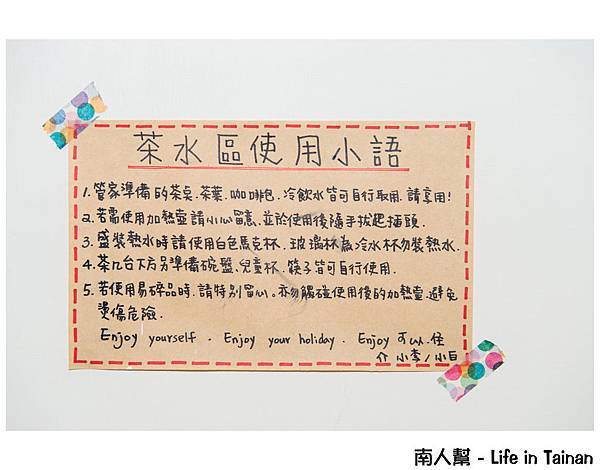 茶水區使用小語
1. 管家準備的茶具.茶葉.咖啡包.冷飲水皆可自行取用.請享用!
2. 若需使用加熱壺請小心留意,並於使用後隨手拔起插頭.
3. 盛裝熱水時請使用白色馬克杯.玻璃杯為冷水杯勿裝熱水.
4. 茶几台下方另準備碗盤、兒童杯.筷子皆可自行使用.
5. 若使用易碎品時.請特別留心。亦勿觸碰使用後的加熱壺.避免
燙傷危險.
Enjoy yourself . Enjoy your holiday . Enjoy 可以.佳
小李/小白
南人幫 - Life in Tainan